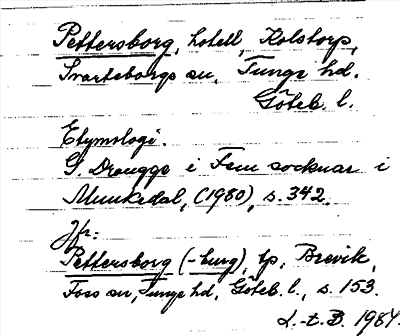 Pettersborg, hotell, Holstorp,
Svarteborgs sn, Tunge hd.
Göteb. l.
Etymologi.
G. Drougge i Fem socknar i
Munkedal, (1980), s. 342.
Jfr:
Pettersborg (-burg), tp, Brevik,
Foss sn, Tunge hd, Göteb. l., s. 153.
L.-t. B. 1984.